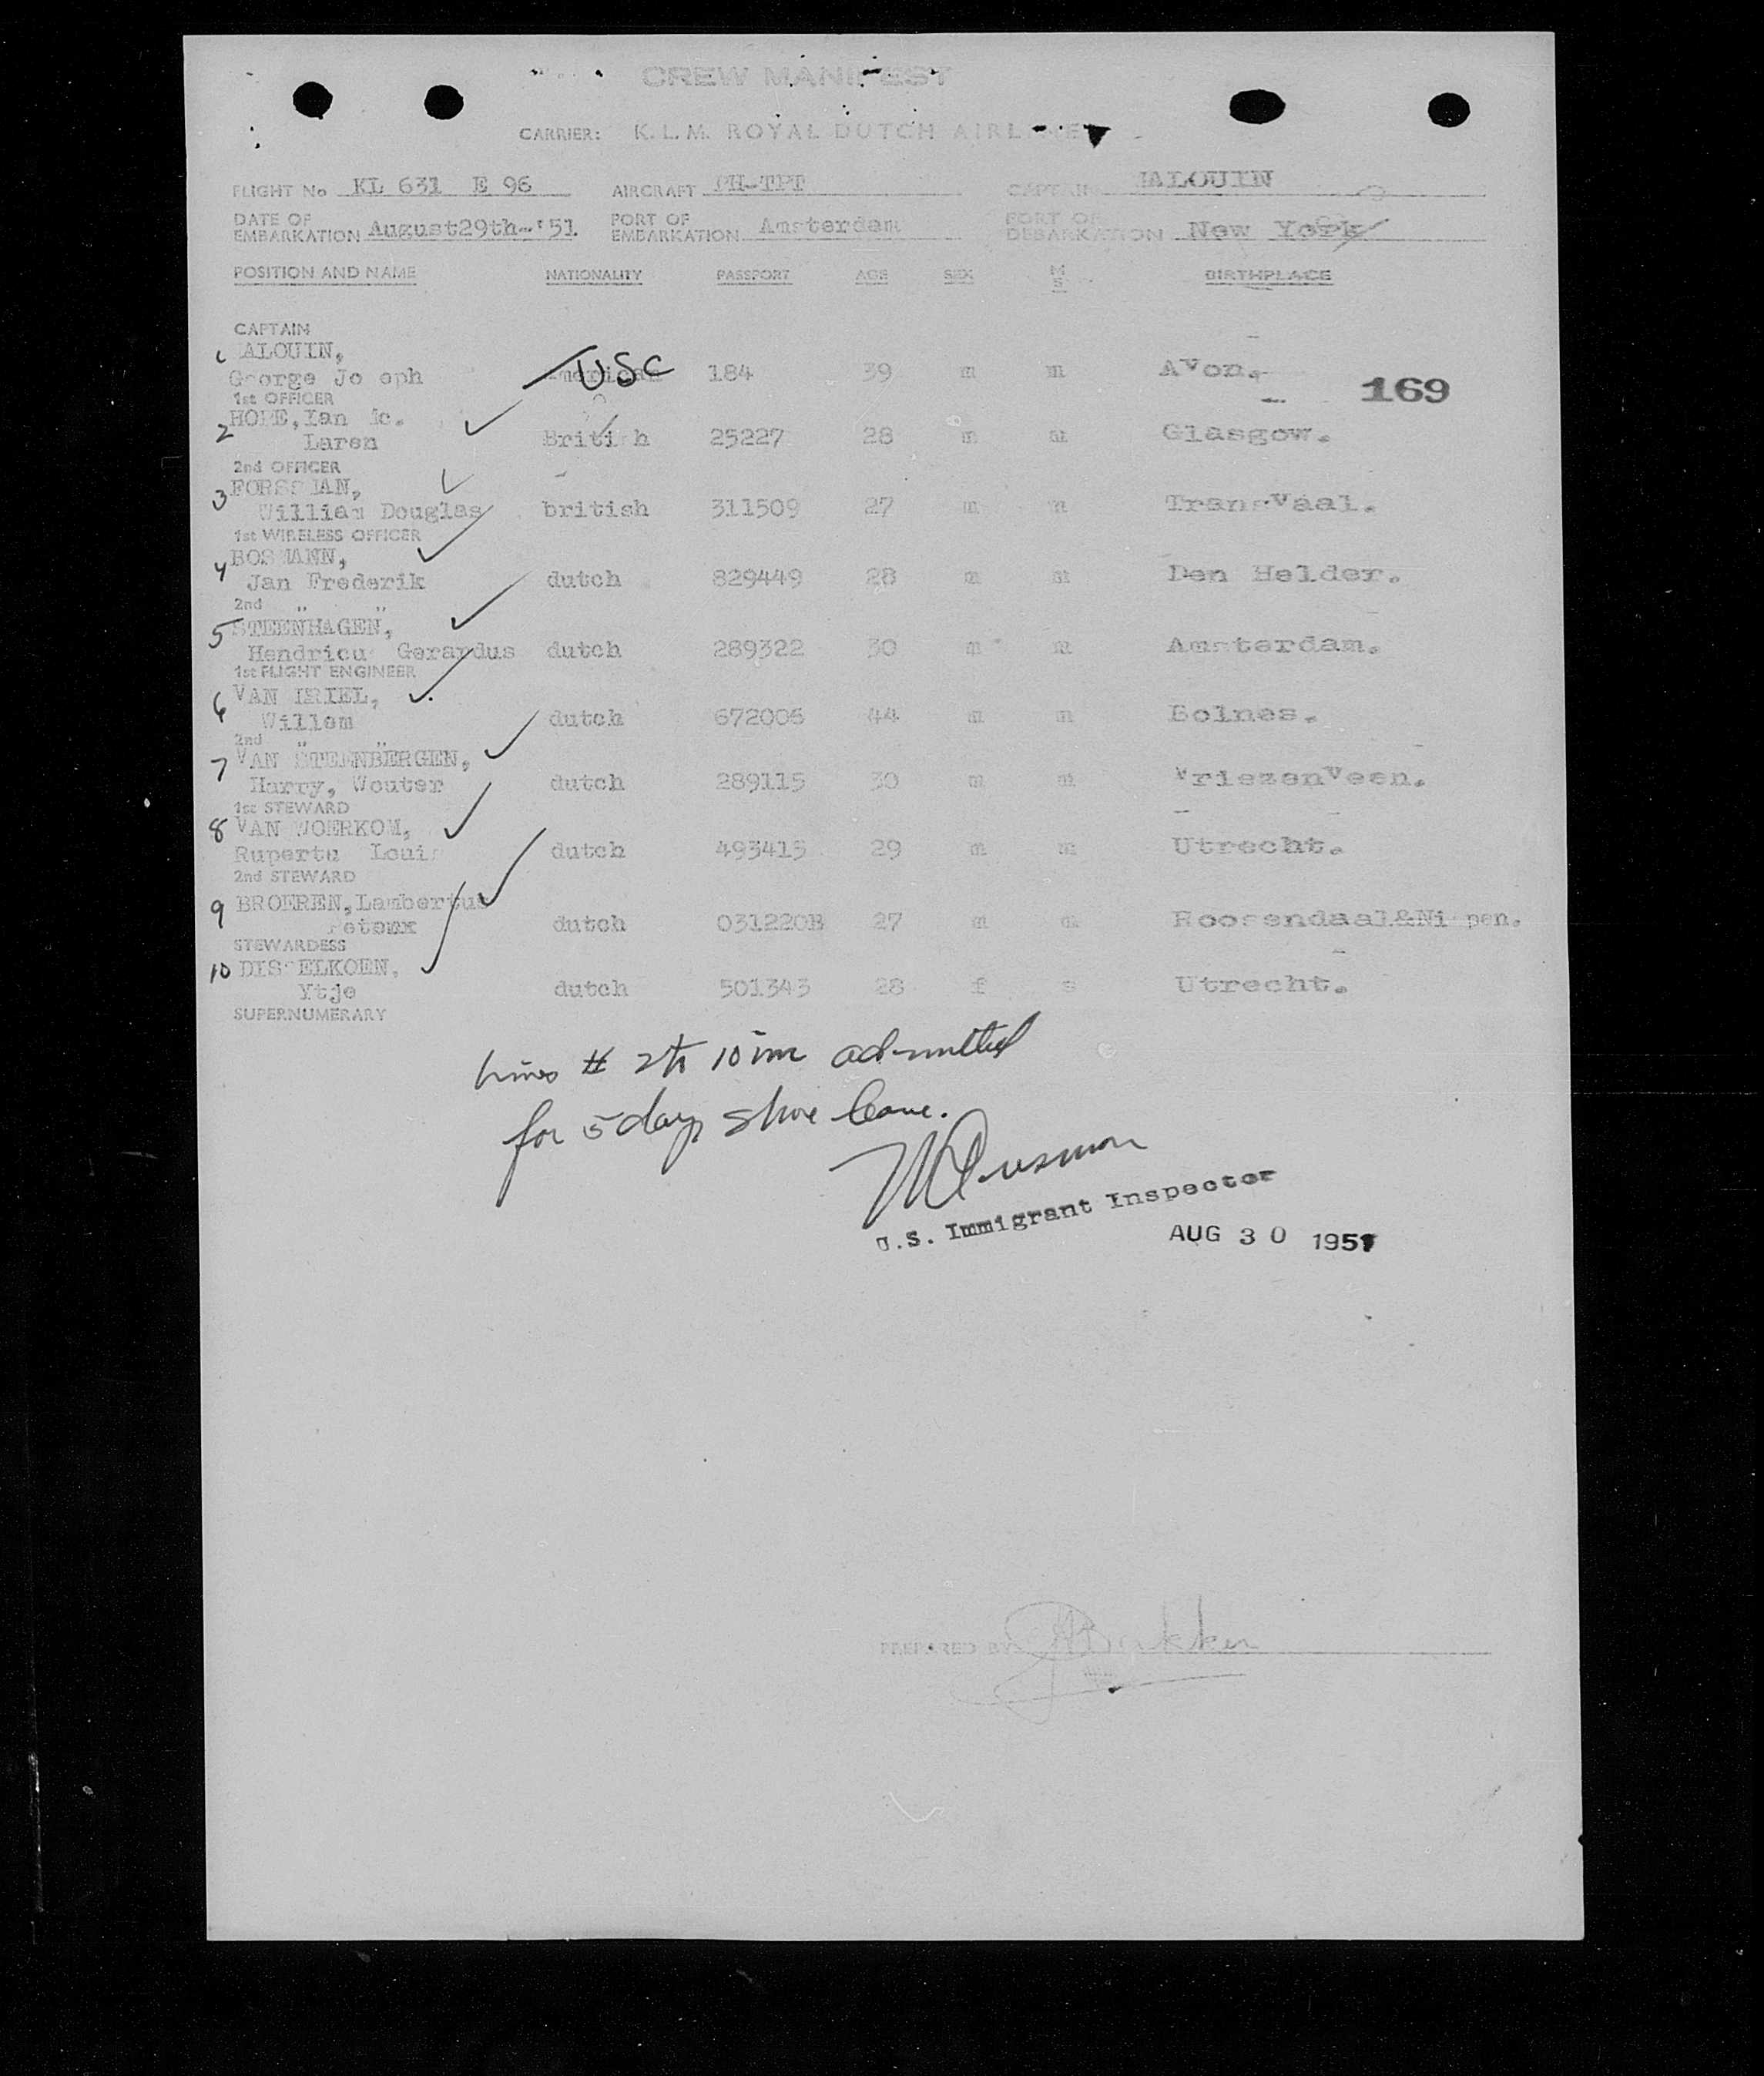 CREW MANIFEST
CARRIER: K.L.M. ROYAL DUTCH
FLIGHT No KL 631 E 96 AIRCRAFT PH-TPT CAPTAIN ALOUIN
DATE OF EMBARKATION August29th-'51 PORT OF EMBARKATION Amsterdam PORT OF DEBARKATION New York
POSITION AND NAME NATIONALITY PASSPORT AGE SEX M S BIRTHPLACE
CAPTAIN
1 ALOUIN,
George Jo eph American USC 184 39 m m AVon. 169
1st OFFICER
2 HOPE, Ian Mc.
Laren British 25227 28 m m Glasgow.
2nd OFFICER
3 FORSSMAN,
William Douglas british 311509 27 m m TransVaal.
1st WIRELESS OFFICER
4 BOSMANN,
Jan Frederik dutch 829449 28 m m Den Helder.
2nd " "
5 STEENHAGEN,
Hendricus Gerardus dutch 289322 30 m m Amsterdam.
1st FLIGHT ENGINEER
6 VAN
Willem dutch 672006 44 m m Bolnes.
2nd " "
7 VAN STEENBERGEN,
Harry, Wouter dutch 289115 30 m m VriezenVeen.
1st STEWARD
8 VAN WOERKOM,
Rupertu Louis dutch 493413 29 m m Utrecht.
2nd STEWARD
9 BROEREN, Lambertus
dutch 031220B 27 m m Roosendaal&Nispen.
STEWARDESS
10 DISSELKOEN,
Ytje dutch 501343 28 f s Utrecht.
SUPERNUMERARY
lines # 2 to 10 inc admitted
for 5 days shore leave.
U.S. Immigrant Inspector
AUG 30 1951
PREPARED BY Bakker